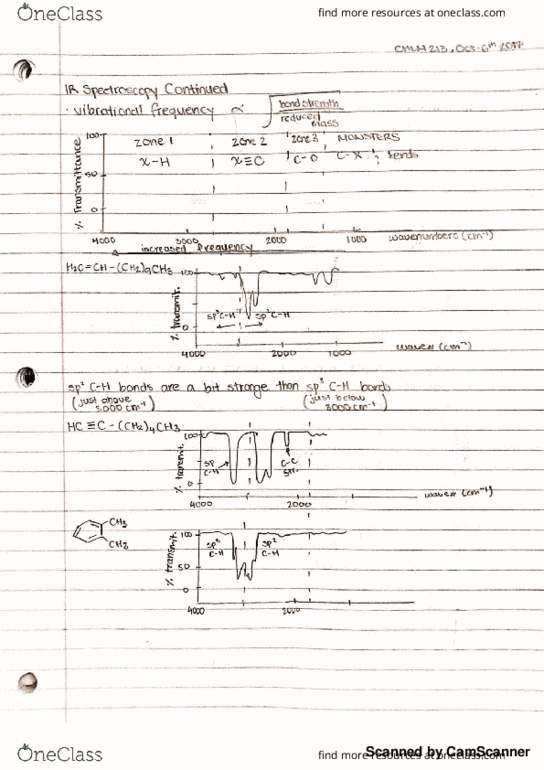 OneClass find more resources at oneclass.com
CHEM 213, Oct 6th 2017
IR Spectroscopy Continued
· vibrational frequency ∝ √ bond strength / reduced mass
zone 1 zone 2 zone 3 MONSTERS
X-H X≡C C-O C-X bends
% Transmittance
100
50
0
4000 3000 2000 1000 wavenumbers (cm⁻¹)
increased frequency
H₂C=CH-(CH₂)₉CH₃
100
% transmit.
sp² C-H sp³ C-H
0
4000 2000 1000 (cm⁻¹)
sp² C-H bonds are a bit stronge than C-H bonds
(just above 3000 cm⁻¹) (just below 3000 cm⁻¹)
HC≡C-(CH₂)₄CH₃
100
% transmit.
sp C-H C-C str.
0
4000 2000 (cm⁻¹)
CH₃
CH₃
% transmit.
100
50
0
sp² C-H C-H
4000
OneClass find more resources at oneclass.com
Scanned by CamScanner